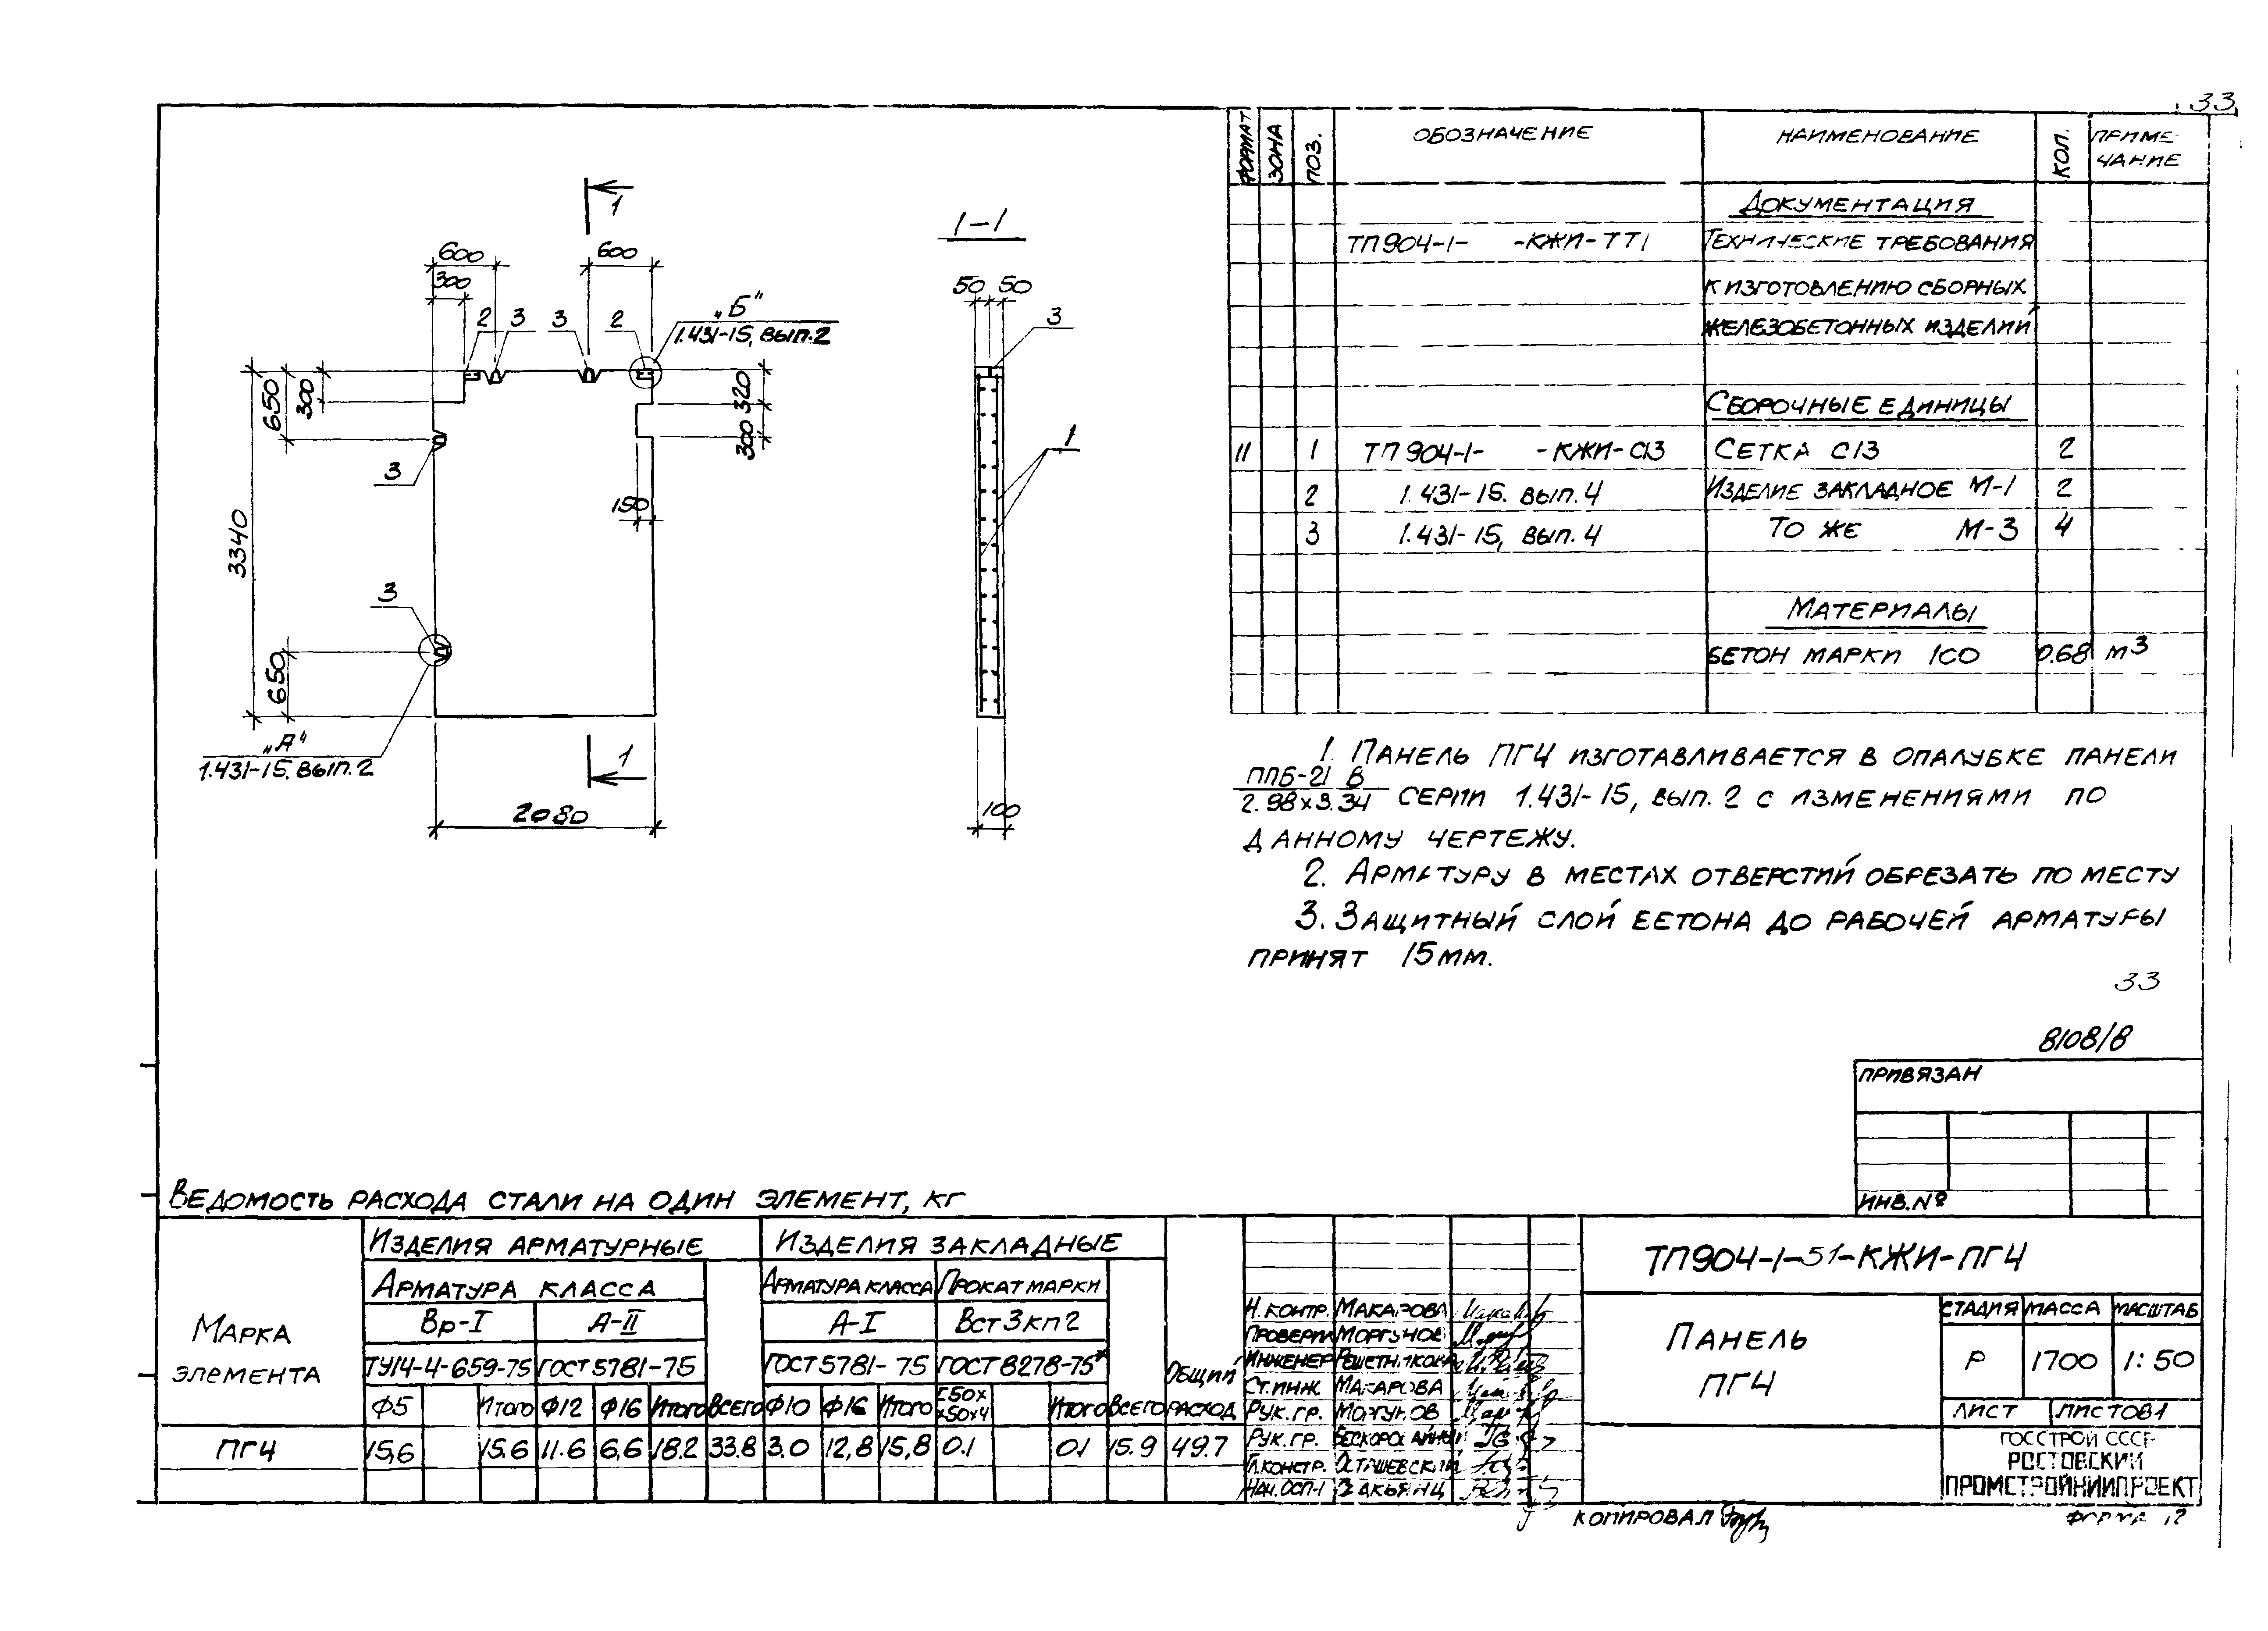 33
1
600
600
300
2 3 3 2
„Б"
1.431-15, вып.2
650
300
320
300
3
150
3340
3
650
„А"
1.431-15. вып.2
1
2080
1-1
50 50
3
1
100
ФОРМАТ ЗОНА ПОЗ. ОБОЗНАЧЕНИЕ НАИМЕНОВАНИЕ КОЛ. ПРИМЕ-
ЧАНИЕ
ДОКУМЕНТАЦИЯ
ТП904-1- -КЖИ-ТТ1 ТЕХНИЧЕСКИЕ ТРЕБОВАНИЯ
К ИЗГОТОВЛЕНИЮ СБОРНЫХ
ЖЕЛЕЗОБЕТОННЫХ ИЗДЕЛИЙ
СБОРОЧНЫЕ ЕДИНИЦЫ
11 1 ТП904-1- -КЖИ-С13 СЕТКА С13 2
2 1.431-15. вып.4 ИЗДЕЛИЕ ЗАКЛАДНОЕ М-1 2
3 1.431-15, вып.4 ТО ЖЕ М-3 4
МАТЕРИАЛЫ
БЕТОН МАРКИ 100 0.68 м3
1. ПАНЕЛЬ ПГ4 ИЗГОТАВЛИВАЕТСЯ В ОПАЛУБКЕ ПАНЕЛИ
ППБ-21 В
2.98х3.34 СЕРИИ 1.431-15, вып. 2 С ИЗМЕНЕНИЯМИ ПО
ДАННОМУ ЧЕРТЕЖУ.
2. АРМАТУРУ В МЕСТАХ ОТВЕРСТИЙ ОБРЕЗАТЬ ПО МЕСТУ
3. ЗАЩИТНЫЙ СЛОЙ БЕТОНА ДО РАБОЧЕЙ АРМАТУРЫ
ПРИНЯТ 15мм.
33
8108/8
ПРИВЯЗАН
ИНВ.№
ВЕДОМОСТЬ РАСХОДА СТАЛИ НА ОДИН ЭЛЕМЕНТ, КГ
МАРКА
ЭЛЕМЕНТА
ИЗДЕЛИЯ АРМАТУРНЫЕ ИЗДЕЛИЯ ЗАКЛАДНЫЕ
АРМАТУРА КЛАССА АРМАТУРА КЛАССА ПРОКАТ МАРКИ
Вр-I А-II А-I Вст3кп2
ТУ14-4-659-75 ГОСТ5781-75 ГОСТ5781-75 ГОСТ8278-75*
ОБЩИЙ
РАСХОД
Ф5 Итого Ф12 Ф16 Итого Всего Ф10 Ф16 Итого С50х
х50х4 Итого Всего
ПГ4 15,6 15.6 11.6 6,6 18.2 33.8 3.0 12,8 15,8 0.1 0.1 15.9 49.7
Н.КОНТР. МАКАРОВА
ПРОВЕРИЛ МОРГУНОВ
ИНЖЕНЕР РЕШЕТНИКОВА
СТ.ИНЖ МАКАРОВА
РУК.ГР. МОРГУНОВ
РУК.ГР.
ГЛ.КОНСТР. ОСТАШЕВСКИЙ
НАЧ.ОСП-1 ЗАКЬЯНЦ
ТП904-1-51-КЖИ-ПГ4
ПАНЕЛЬ
ПГ4
СТАДИЯ МАССА МАСШТАБ
Р 1700 1:50
ЛИСТ ЛИСТОВ 1
ГОССТРОЙ СССР
РОСТОВСКИЙ
ПРОМСТРОЙНИИПРОЕКТ
КОПИРОВАЛ
ФОРМА 12